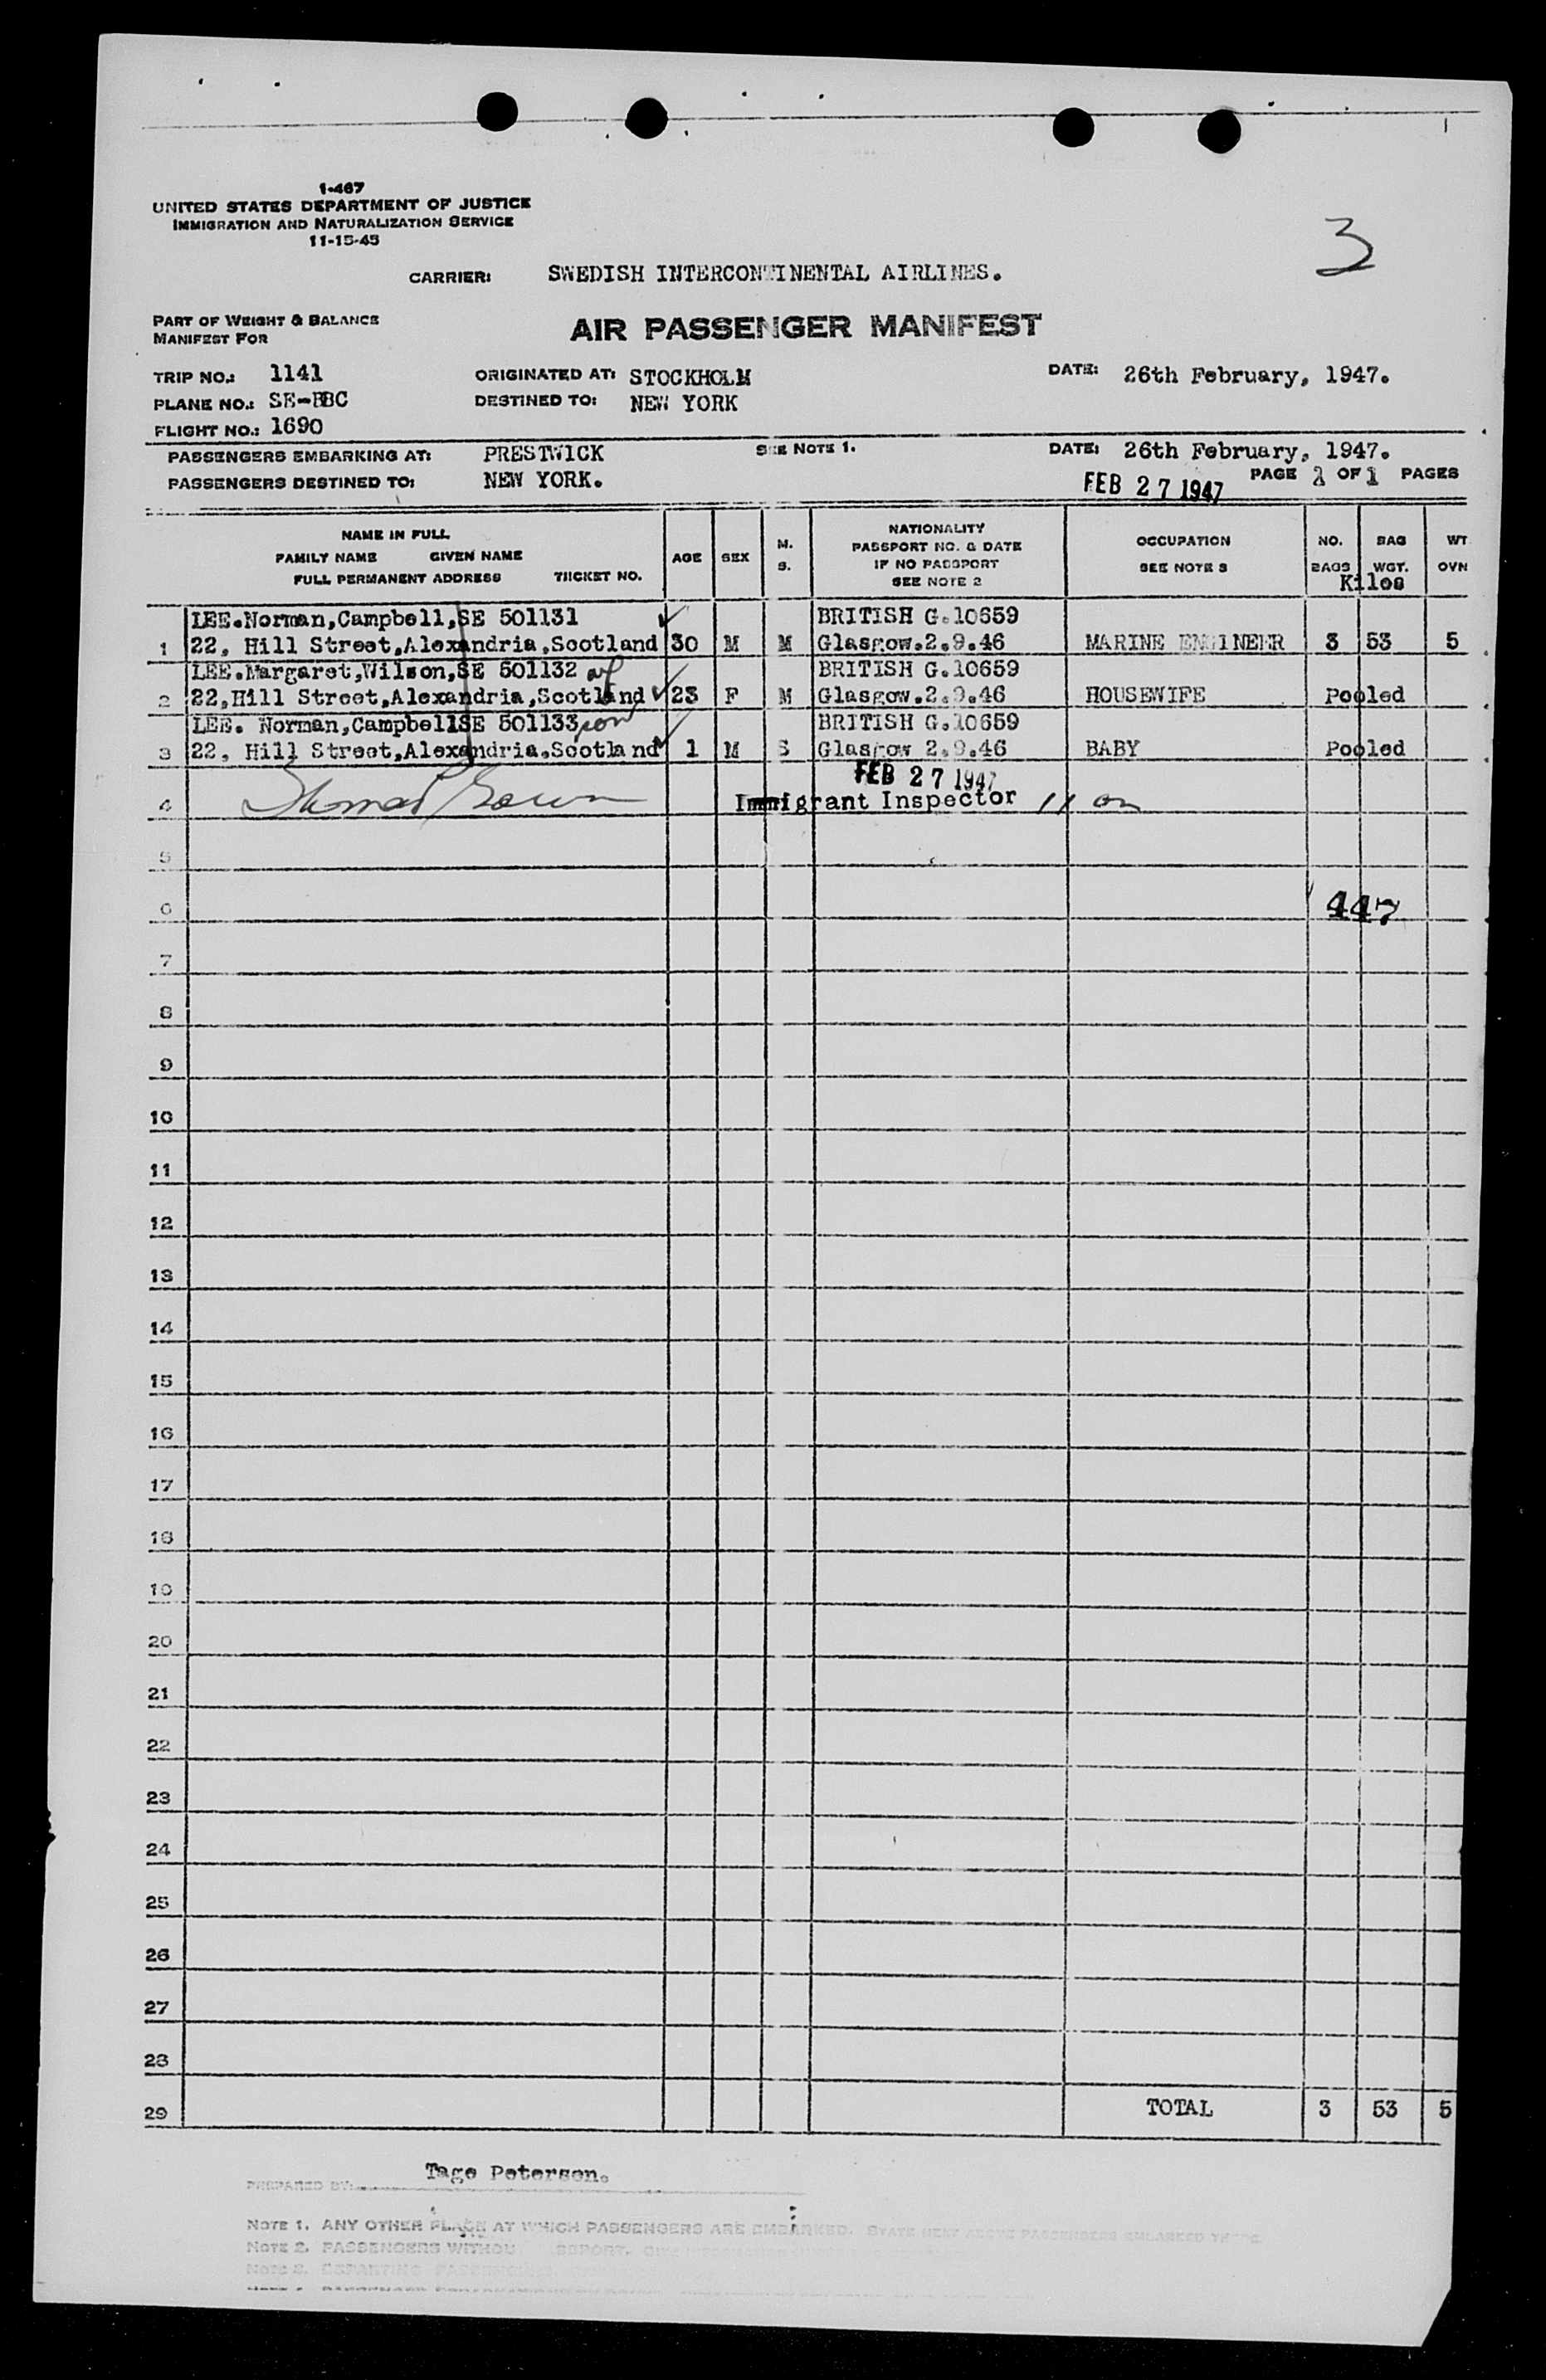 1-467
UNITED STATES DEPARTMENT OF JUSTICE
IMMIGRATION AND NATURALIZATION SERVICE
11-15-45
3
CARRIER: SWEDISH INTERCONTINENTAL AIRLINES.
PART OF WEIGHT & BALANCE
MANIFEST FOR
AIR PASSENGER MANIFEST
TRIP NO.: 1141 ORIGINATED AT: STOCKHOLM DATE: 26th February, 1947.
PLANE NO.: SE-BBC DESTINED TO: NEW YORK
FLIGHT NO.: 1690
PASSENGERS EMBARKING AT: PRESTWICK SEE NOTE 1. DATE: 26th February, 1947.
PASSENGERS DESTINED TO: NEW YORK. FEB 27 1947 PAGE 1 OF 1 PAGES
NAME IN FULL
FAMILY NAME GIVEN NAME
FULL PERMANENT ADDRESS TIICKET NO.
AGE SEX M. S.
NATIONALITY
PASSPORT NO. & DATE
IF NO PASSPORT
SEE NOTE 2
OCCUPATION
SEE NOTE 3
NO. BAGS BAG WGT. WT OVN
Kilos
LEE.Norman,Campbell,SE 501131 BRITISH G.10659
1 22, Hill Street,Alexandria,Scotland 30 M M Glasgow.2.9.46 MARINE ENGINEER 3 53 5
LEE.Margaret,Wilson,SE 501132 wf BRITISH G.10659
2 22,Hill Street,Alexandria,Scotland 23 F M Glasgow.2.9.46 HOUSEWIFE Pooled
LEE. Norman,CampbellSE 501133 son BRITISH G.10659
3 22, Hill Street,Alexandria.Scotland 1 M S Glasgow 2.9.46 BABY Pooled
FEB 27 1947
4 Immigrant Inspector
5
6 447
7
8
9
10
11
12
13
14
15
16
17
18
19
20
21
22
23
24
25
26
27
28
29 TOTAL 3 53 5
PREPARED BY: Tage Peterson.
NOTE 1. ANY OTHER PLACE AT WHICH PASSENGERS ARE EMBARKED.
NOTE 2. PASSENGERS